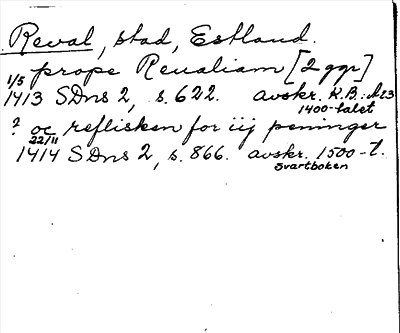 Reval, stad, Estland.
prope Reualiam [2 ggr]
1/5
1413 SDns 2, s. 622. avskr. R.B. A 23
1400-talet
? oc reflisken for iij peninger
22/11
1414 SDns 2, s. 866. avskr. 1500-t.
Svartboken